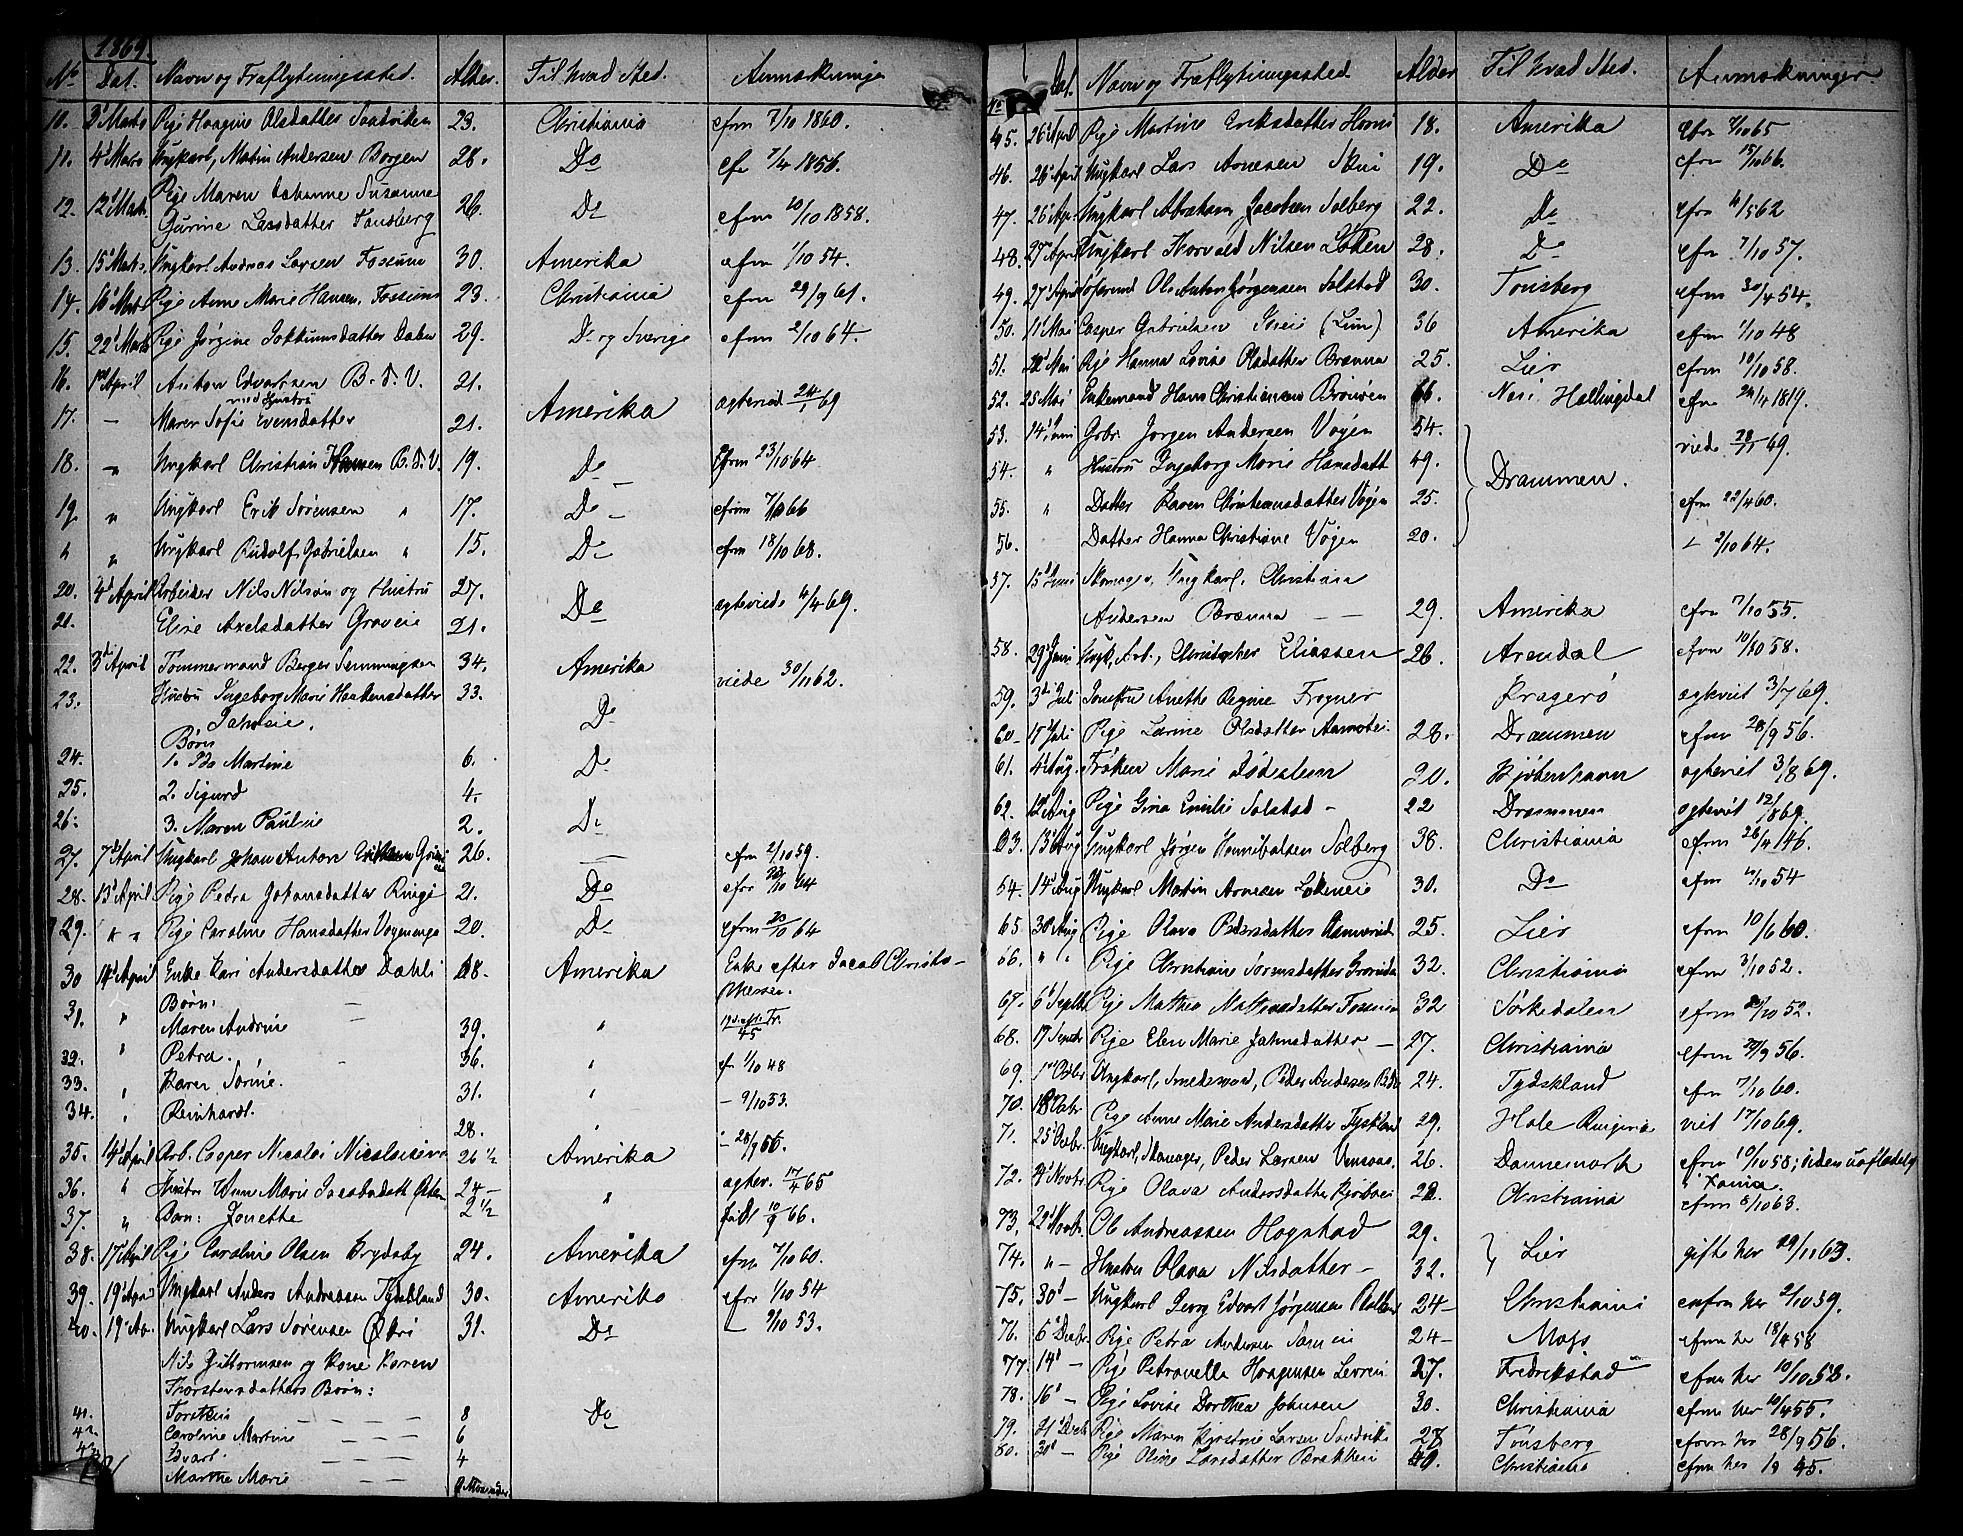 1869.
No Dat. Navn og Fraflytningssted. Alder. Til hvad Sted. Anmærkninger
10. 3' Marts Pige Haagine Olsdatter Sandviken 23. Christiania cfrm 7/10 1860.
11. 4' Mars Ungkarl, Martin Andersen Borgen 28. Do cfr 7/4 1856.
12. 12' Mats. Pige Maren Johanne Susanne
Gurine Larsdatter Tandberg 26. Do cfrm 10/10 1858.
13. 15' Mats. Ungkarl Andreas Larsen Fossum 30. Amerika cfrm 1/10 54.
14. 16' Mats Pige Anne Marie Hansen, Fossum 23. Christiania cfrm 29/9 61.
15. 22' Marts Pige Jørgine Jokkumsdatter Dalen 29. Do og Sverige cfrm 2/10 64.
16. 1st April Anton Edvartsen B. S. V. 21.
med Hustru Amerika ægteviet 24/1 69
17. – Maren Sofie Evensdatter 21.
18. " Ungkarl Christian Hansen B. S. V. 19. Do – cfrm 23/10 64.
19 " Ungkarl Erik Sørensen " 17. Do – cfrm 7/10 66
" " Ungkarl Rudolf Gabrielsen " 15. Do cfrm 18/10 68.
20. 4' April Arbeider Nils Nilsen og Hustru 27. Do ægteviede 4/4 69.
21. Elise Axelsdatter Graveie 21.
22. 3die April Tømmermand Berger Semmingsen 34. Amerika viede 30/11 62.
23. Hustru Ingeborg Marie Haakensdatter 33. Do
Børn
24. 1. Ida Martine 6. Do
25. 2. Sigurd 4.
26. 3. Maren Pauline 2. Do
27. 7' April Ungkarl Johan Anton Grini 26. — cfrm 2/10 59.
28. 13' April Pige Petra Johansdatter Ringi 21. Do cfrm /10 64
29. " " Pige Caroline Hansdatter Vøyenenga 20. Do cfrm 20/10 64
30 14' April Enke Kari Andersdatter Dæhli 68. Amerika Enke efter Jacob Christo-
phersen.
31. " Børn: –
Maren Andrine 39. "
32. " Petra. – 36. " cfr 1/10 48
33. " Karen Sørine. 31. " – 9/10 53.
34. " Reinhardt. 28. " – 28/9 56.
35. 14' April Arb. Casper Nicolai Nicolaisen 26 1/2 Amerika ægtev. 17/4 65
36. " Hustru Anne Marie Jacobsdatt 24 – "
37. " Barn: Jonette 2 1/2 født 10/9 66.
38. 17' April Pige Caroline Olsen Brydsby 24. Amerika cfrm 7/10 60.
39. 19' April Ungkarl Anders Andreasen Tyskland 30. Amerika cfrm 1/10 54
40. 19' Ap. Ungkarl Lars Sørensen Østri 31. Do – 9/10 53.
Nils Guttormsen og Kone Karen
Thorstensdatters Børn:
41. Torstein – – – 8 Do
42. Caroline Martine – – – 6
43. Edvart. – – – 4
Marthe Marie – – 9 Maaneder

No Dat. Navn og Fraflytningssted. Alder Til hvad Sted. Anmærkninger
45. 26' April Pige Martine Eriksdatter Horni 18. Amerika cfr 7/10 65
46. 26' April Ungkarl Lars Arnesen Skui 19. Do cfrm 15/10 66.
47. 26' Apr. Ungkarl Abraham Jacobsen Solberg 22. Do cfrm 4/5 62
48. 27' April Ungkarl Thorvald Nilsen Løken 28. Do cfrm 7/10 57.
49. 27' April Søfærend Ole Anton Jørgensen Solstad 30. Tønsberg cfrm 30/4 54.
50. 11' Mai Casper Gabrielsen (Lun) 36 Amerika cfrm 1/10 48
51. Mai Pige Hanna Lovise Olsdatter Brænna 25. Lier cfrm 10/10 58.
52. 25 Mai Enkemand Hans Christiansen Brønøen 66. Næs Hallingdal cfrm 24/4 1819.
53. 14' Juni Grbr. Jørgen Andersen Vøyen 54. viede 28/ 69.
54. " Hustru Ingeborg Marie Hansdatt 49. Drammen.
55. " Datter Karen Christiansdatter Vøyen 25. cfrm 22/4 60.
56. Datter Hanna Christine Vøyen 20. – 2/10 64.
57. 15' Juni Ungkarl, Christian
Andersen Brænna – 29. Amerika cfrm 7/10 55.
58. 29' Juni Ungk, Arb., Christopher Eliassen 26. Arendal cfrm 10/10 58.
59. 3di Juli Jomfru Anette Regine Frogner Kragerø ægteviet 3/7 69.
60 – 17 Juli Pige Larine Olsdatter 28. Drammen cfrm 28/9 56.
61. 4' Aug. Frøken Marie 20. Kjøbenhavn ægteviet 3/8 69.
62. 12' Aug Pige Gina Emilie Solstad – 22 Drammen ægteviet 12/8 69.
63. 13' Aug Ungkarl Jørgen Hannibalsen Solberg 38. Christiania cfrm 26/4 46.
64. 14' Aug Ungkarl Martin Arnesen Løkeneie 30. Do cfrm 1/10 54
65. 30' Aug Pige Olava Pedersdatter 25. Lier cfrm 10/6 60.
66. " " Pige Christine 32. Christiania cfrm 3/10 52.
67. 6' Septbr Pige Mathea Mathisdatter Fossum 32 Sørkedalen cfrm /10 52.
68. 17 Septbr Pige Elen Marie Jahnsdatter – 27. Christiania cfrm 28/9 56.
69. 1' Octbr Ungkarl, Smedsvend, Peder Andersen 24. Tydskland cfrm 7/10 60.
70. 18' Octbr Pige Anne Marie Andersdatter Tyskland 29. Hole Ringerige viet 17/10 69.
71. 25' Octbr. Ungkarl, Peder Larsen 26. Dannemark cfrm 10/10 58,
72. 4' Novbr Pige Olava Andersdatter Kjørbo 22. Christiania cfrm 8/10 63.
73. 22' Novbr. Ole Andreassen Hogstad 29. Lier gifte her 29/11 63.
74. " – Hustru Olava Nilsdatter – 32.
75. 30' – Ungkarl Georg Edvart Jørgensen 24 – Christiania cnfrm her 2/10 59.
76. 6' Decbr Pige Petra Andersen 24 – Moss cfrm her 18/4 58
77. 14' – Pige Petronella Haagensen Levrei 27. Fredrikstad cfrm her 10/10 58.
78. 16' – Pige Lovise Dorthea Johnsen 30. Christiania cfrm her 10/4 55.
79. 21' Decbr Pige Maren Kjerstine Larsen Sandvik 28 Tønsberg cfrm her 28/9 56.
80. 30' – Pige Oline Larsdatter Brækken 40. Christiania cfrm her 45.